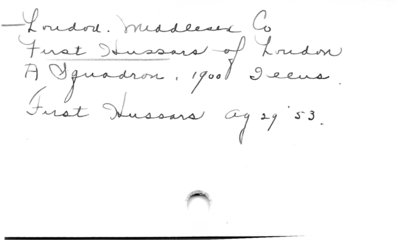 — London. Middlesex Co
First Hussars of London
A Squadron. 1900 Illus.
First Hussars Ag 29 '53.